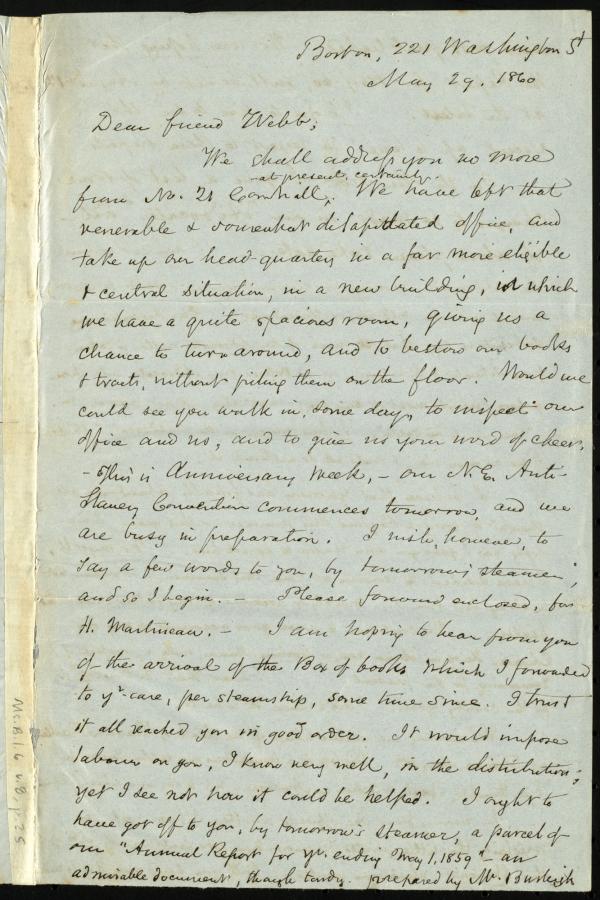 Boston, 221 Washington St
May 29. 1860
Dear friend Webb;
We shall address you no more
- at present, certainly -
from No. 21 Cornhill. We have left that
venerable & somewhat dilapidated office, and
take up our head-quarters in a far more eligible
& central situation, in a new building, in which
we have a quite spacious room, giving us a
chance to turn around, and to bestow our books
& tracts, without piling them on the floor. Would we
could see you walk in, some day, to inspect our
office and us, and to give us your word of cheer.
- This is Anniversary Week, - our N.E. Anti-
Slavery Convention commences tomorrow, and we
are busy in preparation. I wish, however, to
say a few words to you, by tomorrow's steamer;
and so I begin. - Please forward enclosed, for
H. Martineau. - I am hoping to hear from you
of the arrival of the Box of books which I forwarded
to yr care, per steamship, some time since. I trust
it all reached you in good order. It would impose
labour on you, I know very well, in the distribution;
yet I see not how it could be helped. I ought to
have got off to you, by tomorrow's steamer, a parcel of
our "Annual Report for yr. ending May 1, 1859" - an
admirable document, though tardy. prepared by Mr. Burleigh
Ms.B.1.6 v.8, p.25